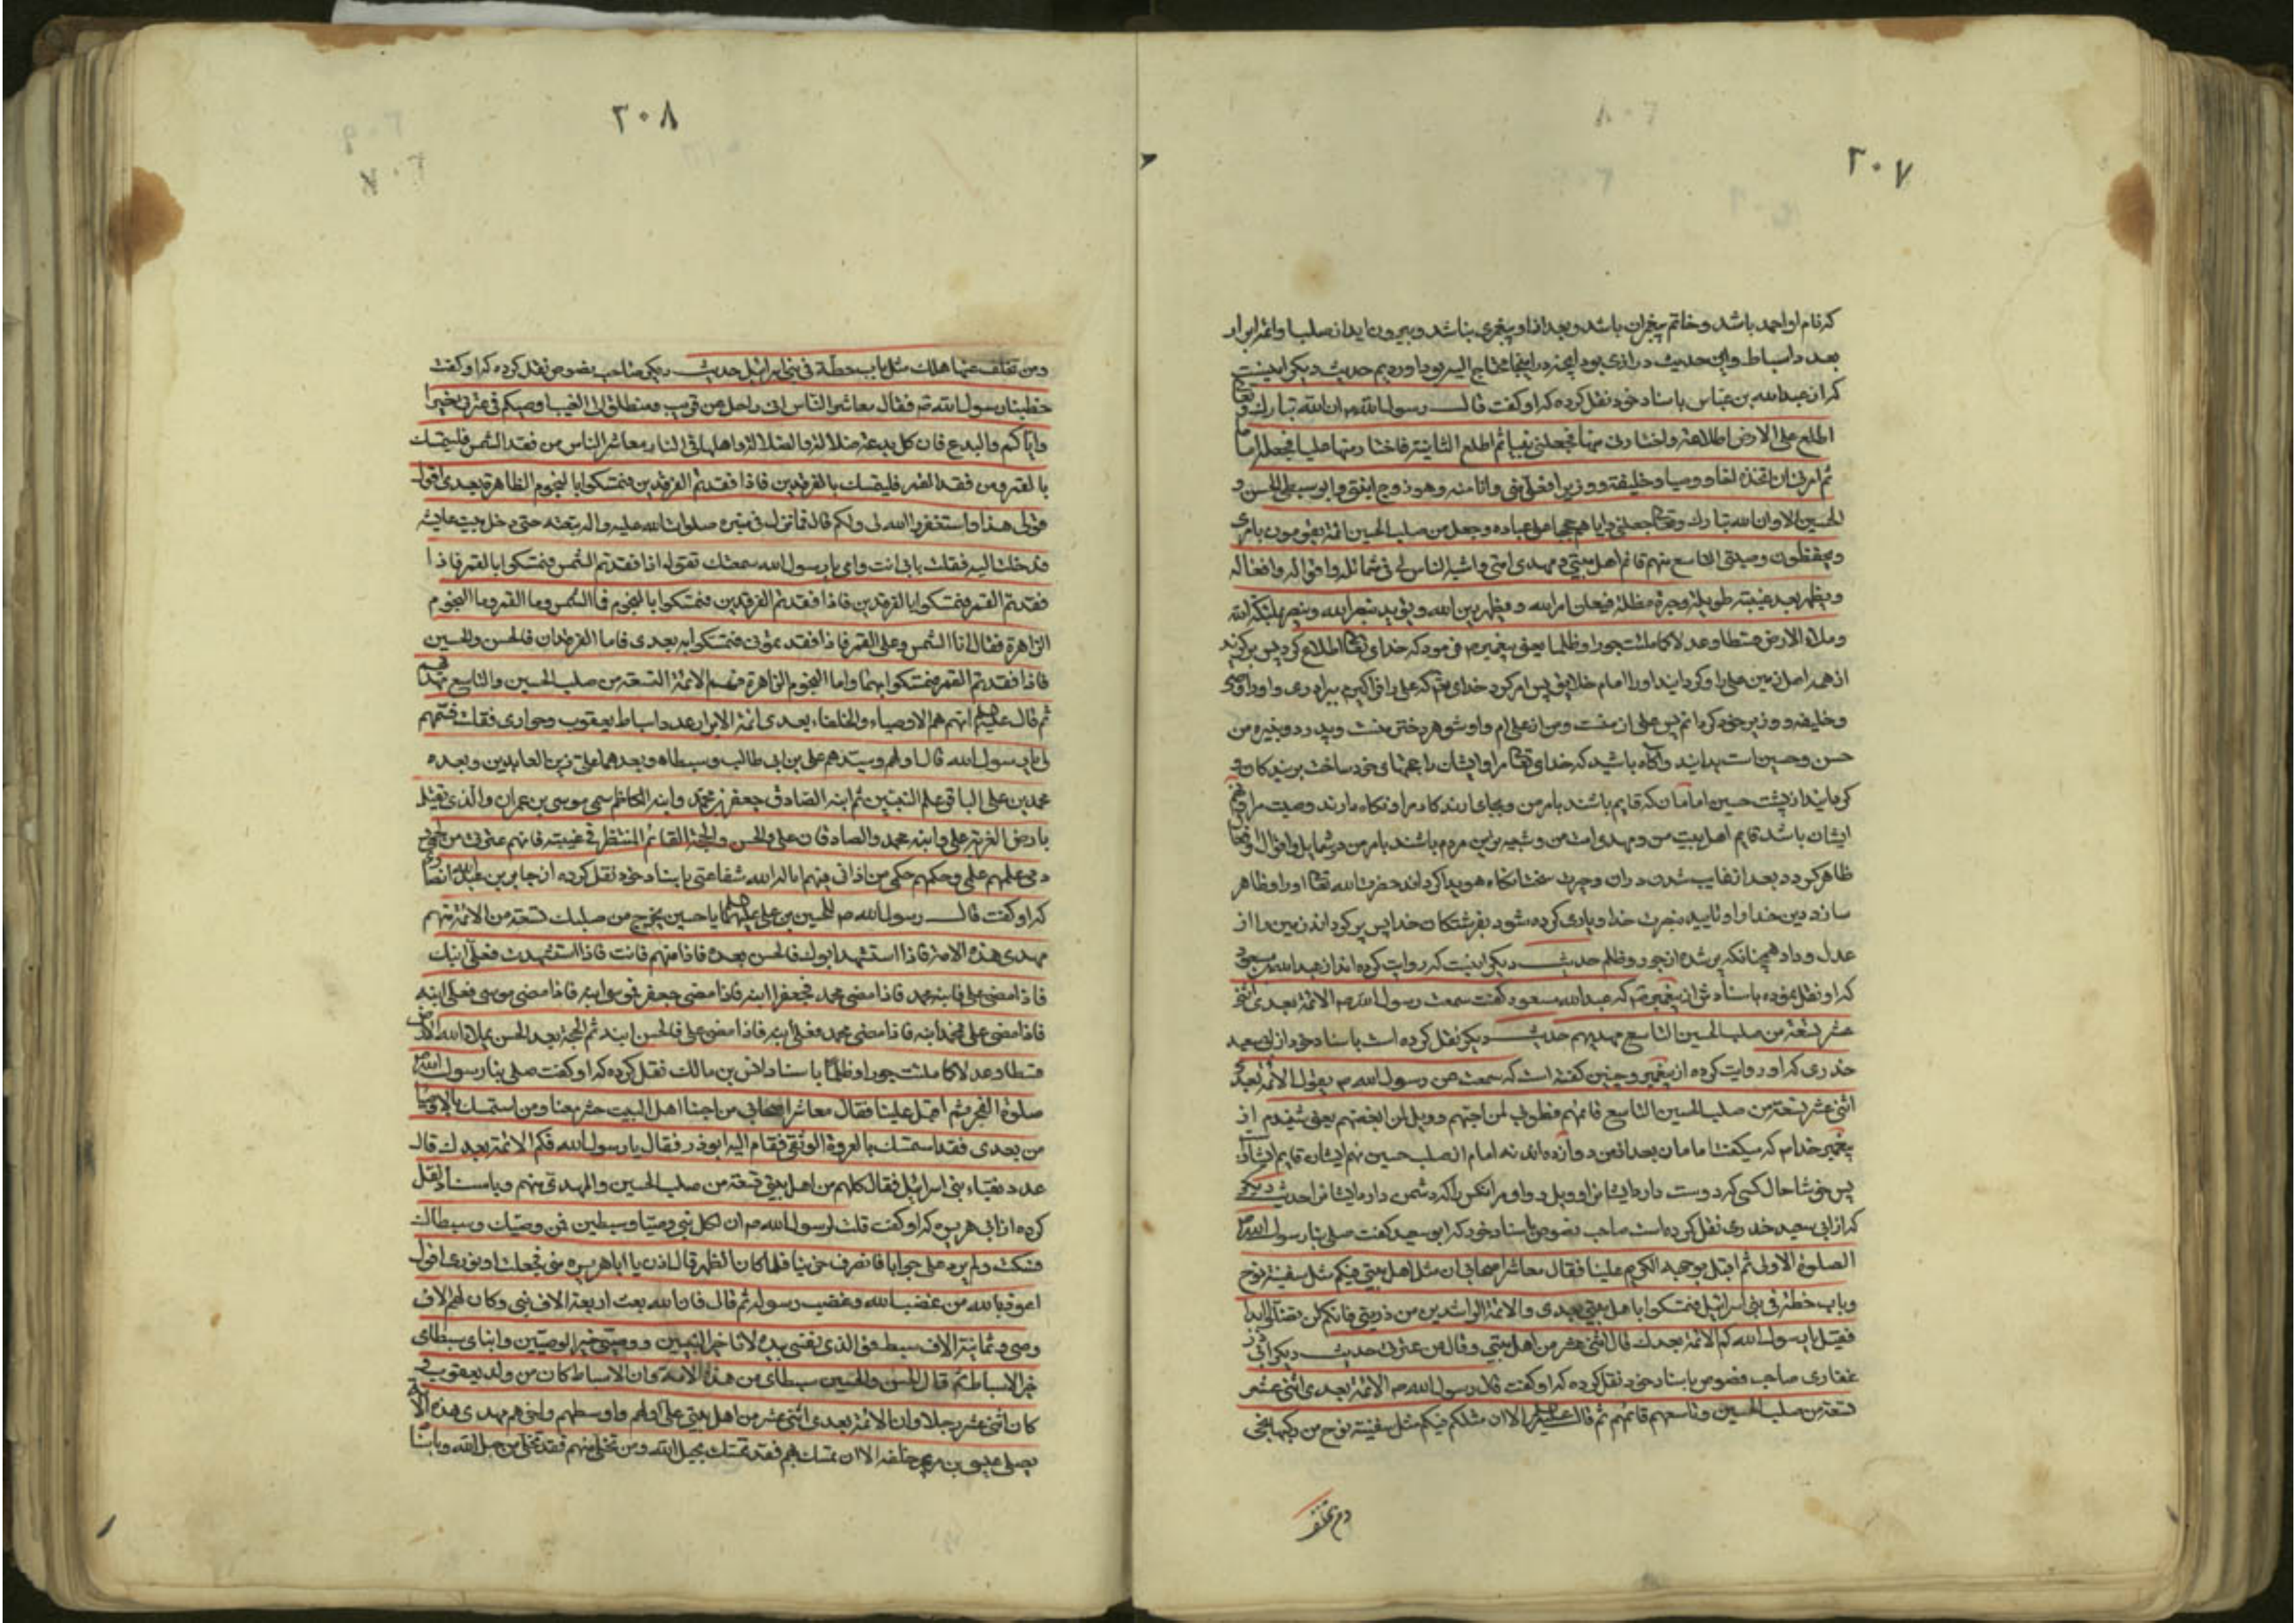 ۲۰۷
که نام او احمد باشد و خاتم پیغمبران باشد و بعد از او پیغمبری نباشد و بیرون اید از صلب او ائمه ابرار
بعدد اسباط و این حدیث درازی بود اینچه در اینجا محتاج الیه بود اوردیم حدیث دیکر اینست
که از عبدالله بن عباس باسناد خود نقل کرده که او کفت قال رسول الله ان الله تبارک و تعالی
اطلع علی الارض اطلاعة واختارنی منها فجعلنی نبیا ثم اطلع الثانیة فاختار منها علیا فجعله اماما
ثم امرنی ان اتخذه اخا و وصیا و خلیفة و وزیرا فعلی منی وانا منه وهو زوج ابنتی وابو سبطی الحسن و
الحسین الا وان الله تبارک وتعالی جعلنی وایاهم حججا علی عباده وجعل من صلب الحسین ائمة یقومون بامری
ویحفظون وصیتی التاسع منهم قائم اهل بیتی ومهدی امتی واشبه الناس لی فی شمائله واقواله وافعاله
ویظهر بعد غیبته طویلة وحیرة مظلة فیعلن امر الله ویظهر دین الله ویؤید بنصر الله وینصر بملئکة الله
وملاء الارض قسطا وعدلا کما ملئت جورا وظلما یعنی پیغمبر فرمود که خدای تعالی اطلاع کرد پس برکزید
از همه اهل زمین علی را و کردانید او را امام خلایق پس امر کرد خدای تعم که علی را فراکیرم ببرادری و او را وصی
و خلیفه و وزیر خود کردانم پس علی از منست و من از علی ام و او شوهر دختر منست و پدر دو نبیره من
حسن و حسین است بدانید و آکاه باشید که خدای تعالی مرا و ایشان را حجتهای خود ساخت بر بندکان و
کردانید از پشت حسین امامان که قایم باشند بامر من و بجای ارند کار مرا و نکاه دارند وصیت مرا و نهم
ایشان باشد قایم اهل بیت من و مهدی امت من و شبیه ترین مردم باشند بامر من در شمایل و اقوال و افعال
ظاهر کردد بعد از غایب شدن دران و حیرت سخت انکاه هویدا کرداند حضرت الله تعالی او را و ظاهر
سازد دین خدا و او تایید بنصرت خدا و یاری کرده شود بفرشتکان خدا پس پر کرداند زمین را از
عدل و داد همچنانکه پر شده از جور و ظلم حدیث دیکر اینست که روایت کرده اند از عبدالله بن مسعود
که او نقل نموده باسنادش از پیغمبر که عبدالله مسعود کفت سمعت رسول الله الائمة بعدی اثنی
عشر تسعة من صلب الحسین التاسع مهدیهم حدیث دیکر نقل کرده است باسناد خود از ابی سعید
خدری که او روایت کرده از پیغمبر و چنین کفته است که سمعت من رسول الله یقول الائمة بعدی
اثنی عشر تسعة من صلب الحسین التاسع قائمهم فطوبی لمن احبهم وویل لمن ابغضهم یعنی شنیدم از
پیغمبر خدا که میکفت امامان بعد از من دوازده اند نه امام از صلب حسین نهم ایشان قایم ایشان
پس خوشا حال کسی که دوست دارد ایشانرا و ویل و وای مر انکس را که دشمن دارد ایشانرا حدیث دیکر
که از ابی سعید خدری نقل کرده است صاحب نصوص باسناد خود که ابو سعید کفت صلی بنا رسول الله
الصلوة الاولی ثم اقبل بوجهه الکریم علینا فقال معاشر اصحابی ان مثل اهل بیتی فیکم مثل سفینة نوح
وباب حطة فی بنی اسرائیل فتمسکوا باهل بیتی بعدی والائمة الراشدین من ذریتی فانکم لن تضلوا ابدا
فقیل یا رسول الله کم الائمة بعدک قال اثنی عشر من اهل بیتی وقال من عترتی حدیث دیکر ابی ذر
غفاری صاحب نصوص باسناد خود نقل کرده که او کفت قال رسول الله الائمة بعدی اثنی عشر
تسعة من صلب الحسین وتاسعهم قائمهم ثم قال الا ان مثلکم فیکم مثل سفینة نوح من رکبها نجی
ومن تخلف
۲۰۸
ومن تخلف عنها هلک مثل باب حطة فی بنی اسرائیل حدیث دیکر صاحب نصوص نقل کرده که او کفت
خطبنا رسول الله فقال معاشر الناس انی راحل عن قریب ومنطلق الی الغیب اوصیکم فی عترتی خیرا
وایاکم والبدع فان کل بدعة ضلالة والضلالة واهلها فی النار معاشر الناس من فقد الشمس فلیتمسک
بالقمر ومن فقد القمر فلیتمسک بالفرقدین فاذا فقدتم الفرقدین فتمسکوا بالنجوم الظاهرة بعدی اقول
قولی هذا واستغفروا الله لی ولکم قال فما نزل فی منبره صلوات الله علیه واله تبعته حتی دخل بیت عایشه
فدخلت الیه فقلت بابی انت وامی یا رسول الله سمعتک تقول اذا فقدتم الشمس فتمسکوا بالقمر فاذا
فقدتم القمر فتمسکوا بالفرقدین فاذا فقدتم الفرقدین فتمسکوا بالنجوم فما الشمس وما القمر وما النجوم
الزاهرة فقال انا الشمس وعلی القمر فاذا فقدتمونی فتمسکوا به بعدی فاما الفرقدان فالحسن والحسین
فاذا فقدتم القمر فتمسکوا بهما واما النجوم الزاهرة فهم الائمة التسعة من صلب الحسین والتاسع مهدیهم
ثم قال انهم هم الاوصیاء والخلفاء بعدی ائمة الابرار عدد اسباط یعقوب وحواری فقلت فسمهم
لی یا رسول الله قال اولهم وسیدهم علی بن ابی طالب وسبطاه وبعدهما علی زین العابدین وبعده
محمد بن علی الباقر علم النبیین ثم ابنه الصادق جعفر بن محمد وابنه الکاظم سمی موسی بن عمران والذی یقتل
بارض الغربة علی وابنه محمد والصادقان علی والحسن والحجة القائم المنتظر فی غیبته فانهم عترتی من لحمی
ودمی علمهم علمی وحکمهم حکمی من اذانی فیهم اناله الله شفاعتی باسناد خود نقل کرده از جابر بن عبدالله انصاری
که او کفت قال رسول الله للحسین بن علی یا حسین یخرج من صلبک تسعة من الائمة منهم
مهدی هذه الامة فاذا استشهد ابوک فالحسن بعده فاذا منهم فانت فاذا استشهدت فعلی ابنک
فاذا مضی علی فابنه محمد فاذا مضی محمد فجعفر ابنه فاذا مضی جعفر فموسی ابنه فاذا مضی موسی فعلی ابنه
فاذا مضی علی فمحمد ابنه فاذا مضی محمد فعلی ابنه فاذا مضی علی فالحسن ابنه ثم الحجة بعد الحسن یملاء الله الارض
قسطا وعدلا کما ملئت جورا وظلما باسناد انس بن مالک نقل کرده که او کفت صلی بنا رسول الله
صلوة الفجر ثم اقبل علینا فقال معاشر اصحابی من احبنا اهل البیت حشر معنا ومن استمسک بالاوصیاء
من بعدی فقد استمسک بالعروة الوثقی فقام الیه ابوذر فقال یا رسول الله فکم الائمة بعدک قال
عدد نقباء بنی اسرائیل فقال کلهم من اهل بیتی تسعة من صلب الحسین والمهدی منهم وباسناد نقل
کرده از ابی هریره که او کفت قلت لرسول الله ان لکل نبی وصیا وسبطین فمن وصیک وسبطاک
فسکت ولم یرد علی جوابا فانصرف حزینا فلما کان الظهر قال ادن یا اباهریره
اعوذ بالله من غضب الله وغضب رسوله ثم قال فان الله بعث اربعة الاف نبی وکان لهم الاف
وصی وثمانیة الاف سبط فوالذی نفسی بیده لانا خیر النبیین ووصیی خیر الوصیین وابنای سبطای
خیر الاسباط ثم قال الحسن والحسین سبطای من هذه الامة وان الاسباط کان من ولد یعقوب
کان اثنی عشر رجلا وان الائمة بعدی اثنی عشر من اهل بیتی علی اولهم واوسطهم محمد مهدی هذه الامة
یصلی عیسی بن مریم خلفه الا ان تمسک بهم فقد تمسک بحبل الله ومن تخلی منهم فقد تخلی من حبل الله وباسناد